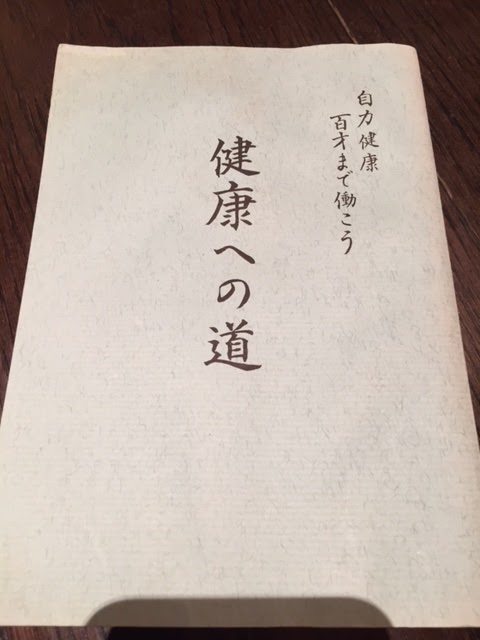 自力健康
百才まで働こう
健康への道